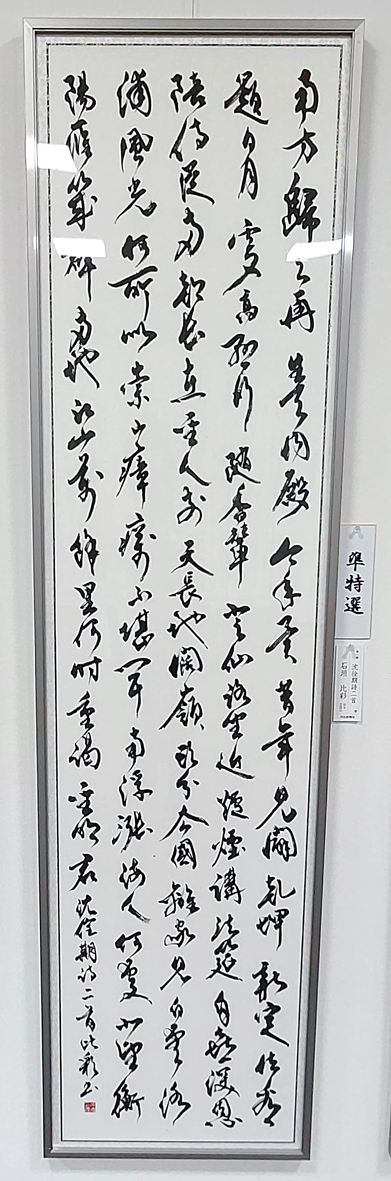 南方歸去再生天内殿今年異昔年見闢乾坤新定位看
題日月更高懸行隨香輦登仙路坐近爐煙講法筵自喜深恩
陪侍從兩朝長在聖人前天長地闊嶺頭分去國離家見白雲洛
浦風光何所似崇山瘴癘不堪聞南浮漲海人何處北望衡
陽雁幾群兩地江山萬餘里何時重謁聖明君沈佺期詩二首比彩書
準特選
沈佺期詩二首
石垣 比彩